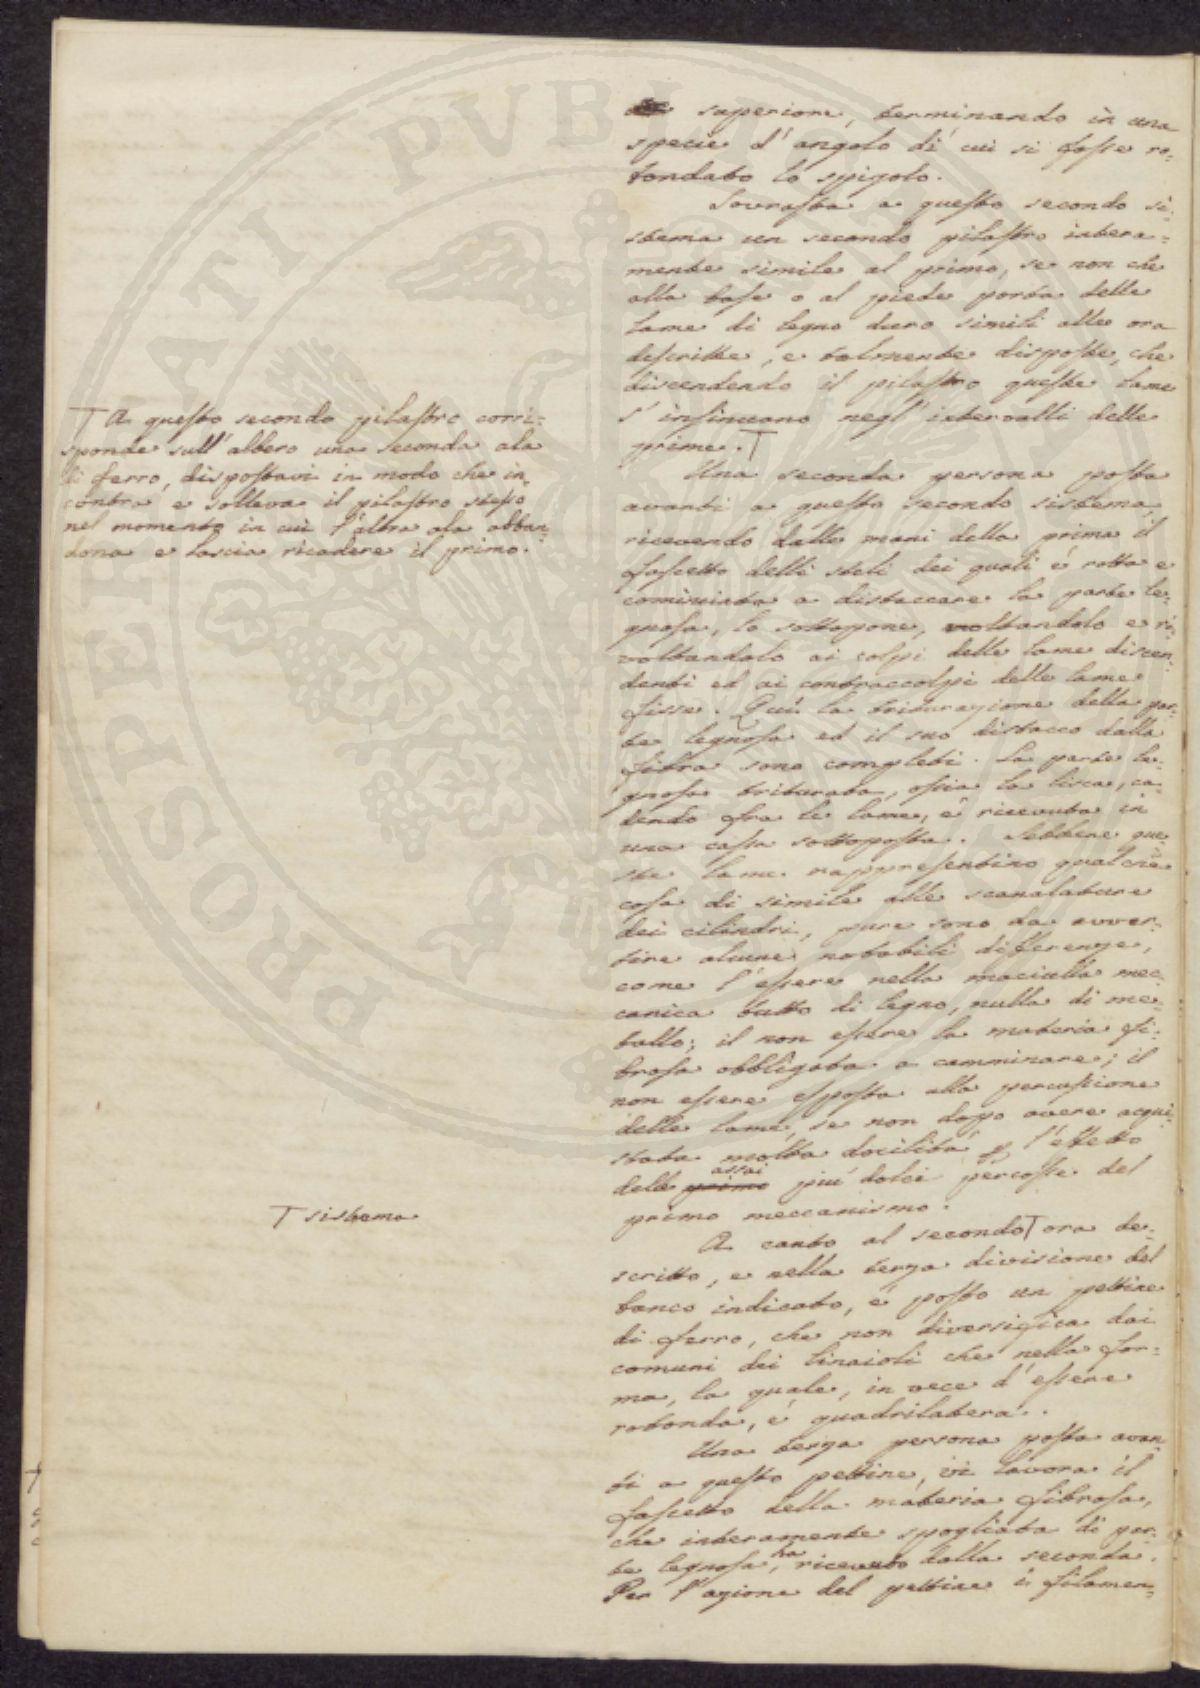 superiore, terminando in una
specie d'angolo di cui si fosse ro=
tondato lo spigolo.
Sovrasta a questo secondo si=
stema un secondo pilastro intera=
mente simile al primo, se non che
alla base o al piede porta delle
lame di legno duro simili alle ora
descritte, e talmente disposte, che
discendendo il pilastro queste lame
s'insinuano negl'intervalli delle
prime. T
T A questo secondo pilastro corri=
sponde sull'albero una seconda ala
di ferro, dispostavi in modo che in=
contra e solleva il pilastro stesso
nel momento in cui l'altra ala abban=
dona e lascia ricadere il primo.
Una seconda persona posta
avanti a questo secondo sistema,
ricevendo dalle mani della prima il
fascetto delli steli dei quali è rotta e
cominciata a distaccare la parte le=
gnosa, lo sottopone, voltandolo e ri=
voltandolo ai colpi delle lame discen=
denti ed ai contraccolpi delle lame
fisse. Quì la triturazione della par=
te legnosa ed il suo distacco dalla
fibra sono completi. La parte le=
gnosa triturata, ossia la lisca, ca=
dendo fra le lame, è ricevuta in
una cassa sottoposta. Sebbene que=
ste lame rappresentino qualche
cosa di simile alle scanalature
dei cilindri, pure sono da avver=
tire alcune notabili differenze,
come l'essere nella maciulla mec=
canica tutto di legno, nulla di me=
tallo; il non essere la materia fi=
brosa obbligata a camminare; il
non essere esposta alla percussione
delle lame, se non dopo avere acqui=
stata molta docilità p l'effetto
delle assai più dolci percosse del
primo meccanismo.
T sistema
A canto al secondo T ora de=
scritto, e nella terza divisione del
banco indicato, è posto un pettine
di ferro, che non diversifica dai
comuni dei linaioli che nella for=
ma, la quale, in vece d'essere
rotonda, è quadrilatera.
Una terza persona posta avan=
ti a questo pettine, vi lavora il
fascetto della materia fibrosa,
che interamente spogliata di par=
te legnosa, ha ricevuto dalla seconda.
Per l'azione del pettine i filamen=